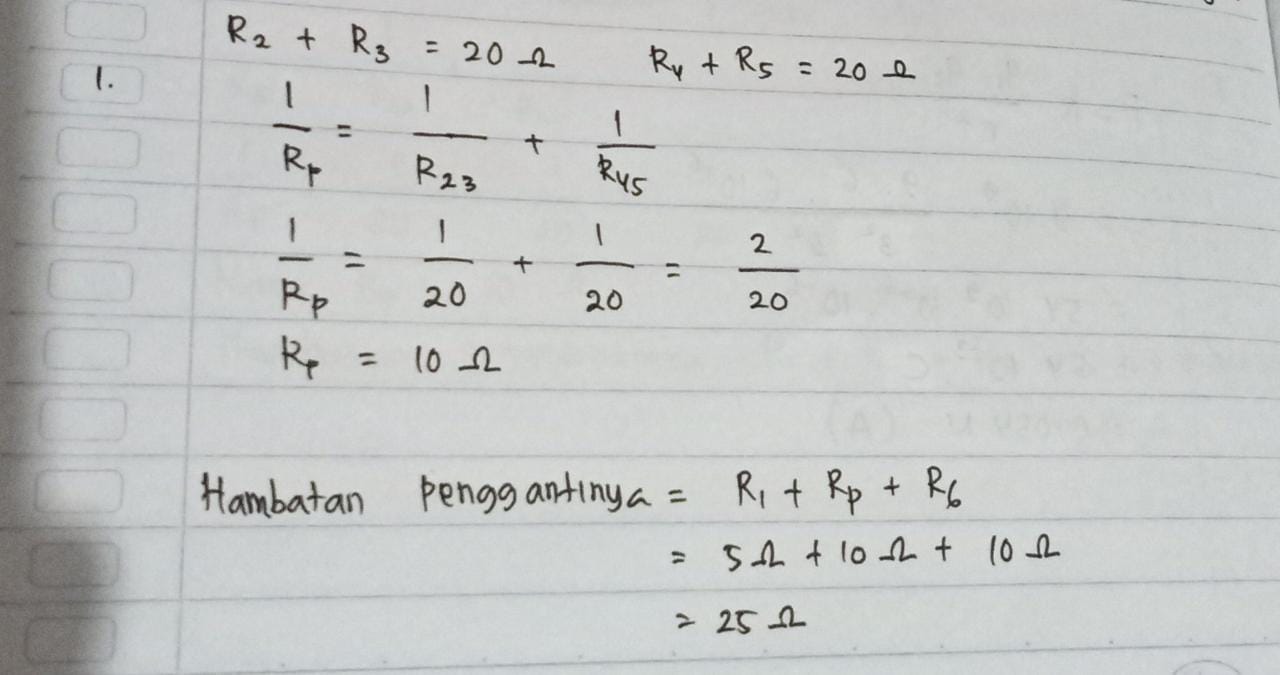 R₂ + R₃ = 20 Ω R₄ + R₅ = 20 Ω
1.
1/Rp = 1/R₂₃ + 1/R₄₅
1/Rp = 1/20 + 1/20 = 2/20
Rp = 10 Ω
Hambatan Penggantinya = R₁ + Rp + R₆
= 5 Ω + 10 Ω + 10 Ω
= 25 Ω